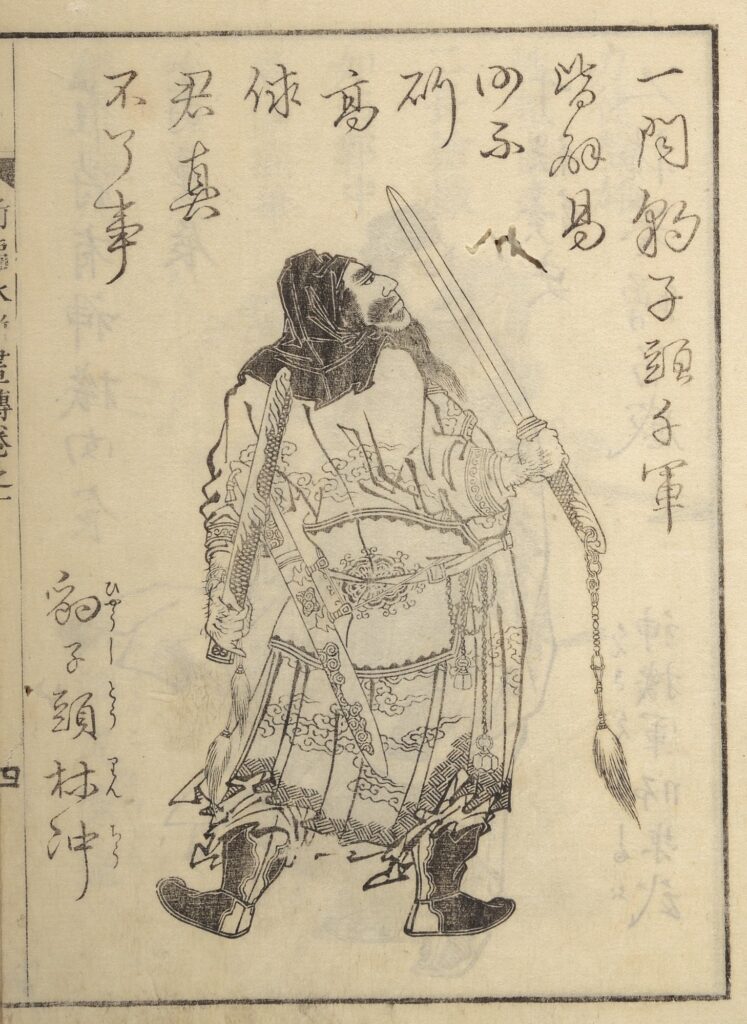 一聞豹子頭千軍
皆辟易
何不
斫
高
俅
君真
不了事
豹子頭林冲
ひやうしとうりんちう
新編水滸畫傳卷之一
四